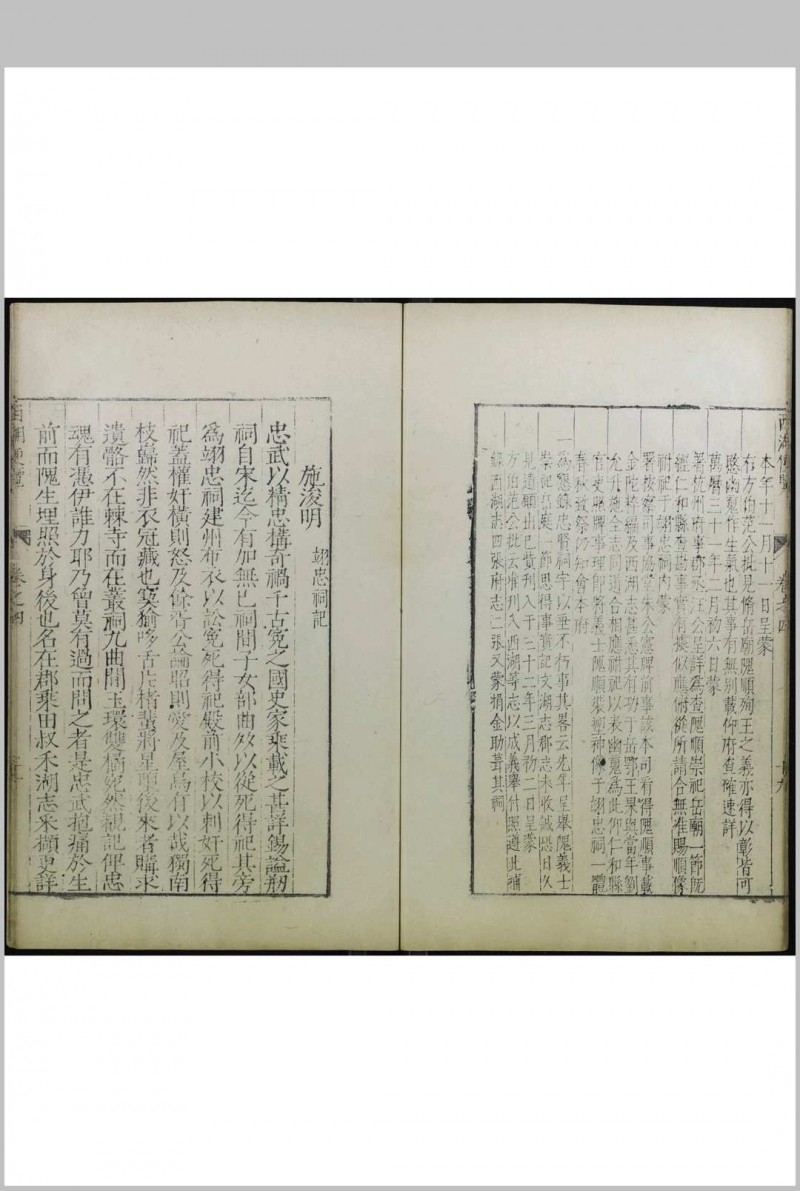 本年十一月十一日呈蒙
布方伯范公批見脩岳廟隗順殉王之義亦得以彰皆可
慰幽魂作生氣也其事有無別載仰府查確速詳
萬曆三十一年二月初六日蒙
署杭州府事郡丞汪公呈詳為查隗順崇祀岳廟一節旣
經仁和縣查勘事實有據似應俯從所請合無准隗順像
祔祀于翊忠祠内蒙
署按察司事協堂朱公憲牌前事該本司看得隗順事載
金陀稡編及西湖志甚悉其有功于岳鄂王果與當年劉
允升施全志同道合相應祔祀以表幽冤為此仰仁和縣
官吏照牌事理即將義士隗順裝塑神像于翊忠祠一體
春秋致祭仍知會本府
一為懇錄忠賢祠宇以垂不朽事其畧云先年呈舉隗義士
崇祀岳廟一節思得事實記文湖志郡志未收誠恐日久
見道贖出已貲刋入于三十二年三月初二日呈蒙
方伯范公批云准刋入西湖等志以成義舉付照遵此補
鐫西湖志四張府志二張又蒙捐金助葺其祠
西湖便覽
卷之四
十九
施浚明
翊忠祠記
忠武以精忠構奇禍千古冤之國史家乘載之甚詳錫謚剏
祠自宋迄今有加無已祠間子女部曲效以從死得祀其旁
為翊忠祠建州布衣以訟冤死得祀殿前小校以刺奸死得
祀蓋權奸橫則怒及餘胥公論昭則愛及屋烏有以哉獨南
枝巋然非衣冠藏也寞獪哆舌片楮蜚將星隕後來者購求
遺骼不在棘寺而在叢祠九曲間玉環雙橘宛然覩記俾忠
魂有憑伊誰力耶乃曾莫有過而問之者是忠武抱痛於生
前而隗生埋照於身後也名在郡乘田叔禾湖志釆擷更詳
西湖便覽
卷之四